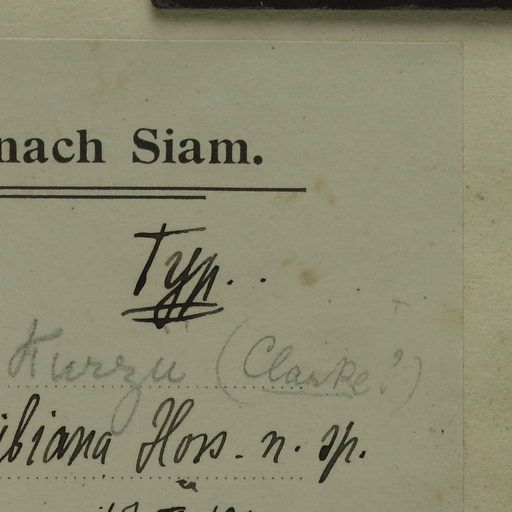 nach Siam.
Typ.
Kurzii (Clarke?)
ibiana Hoss. n. sp.